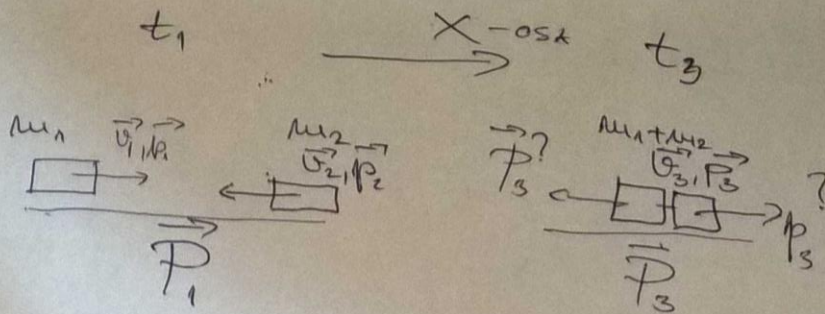 t₁ X-osa t₃
m₁ v⃗₁, p⃗₁ m₂ v⃗₂, p⃗₂ p⃗₃? m₁+m₂ v⃗₃, p⃗₃ ?
p₃
P⃗₁ P⃗₃